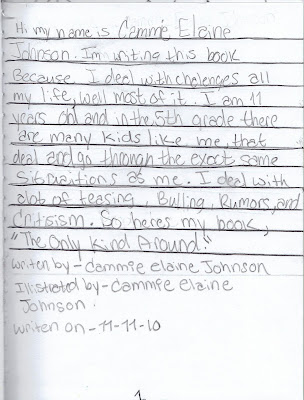 Hi my name is Cammie Elaine
Johnson. I'm writing this book
Because I deal with chalenges all
my life, well most of it. I am 11
years old and in the 5th grade there
are many kids like me, that
deal and go through the exact same
situaitions as me. I deal with
alot of teasing, Bulling, Rumors, and
Critisism. So heres my book,
"The Only Kind Around!"
writen by-Cammie elaine Johnson
Illistrated by-Cammie Elaine
Johnson
writen on-11-11-10
1